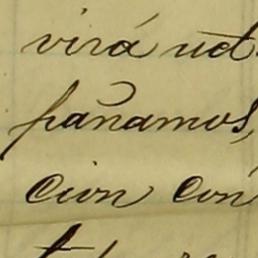 virá ud
pañamos,
cion con